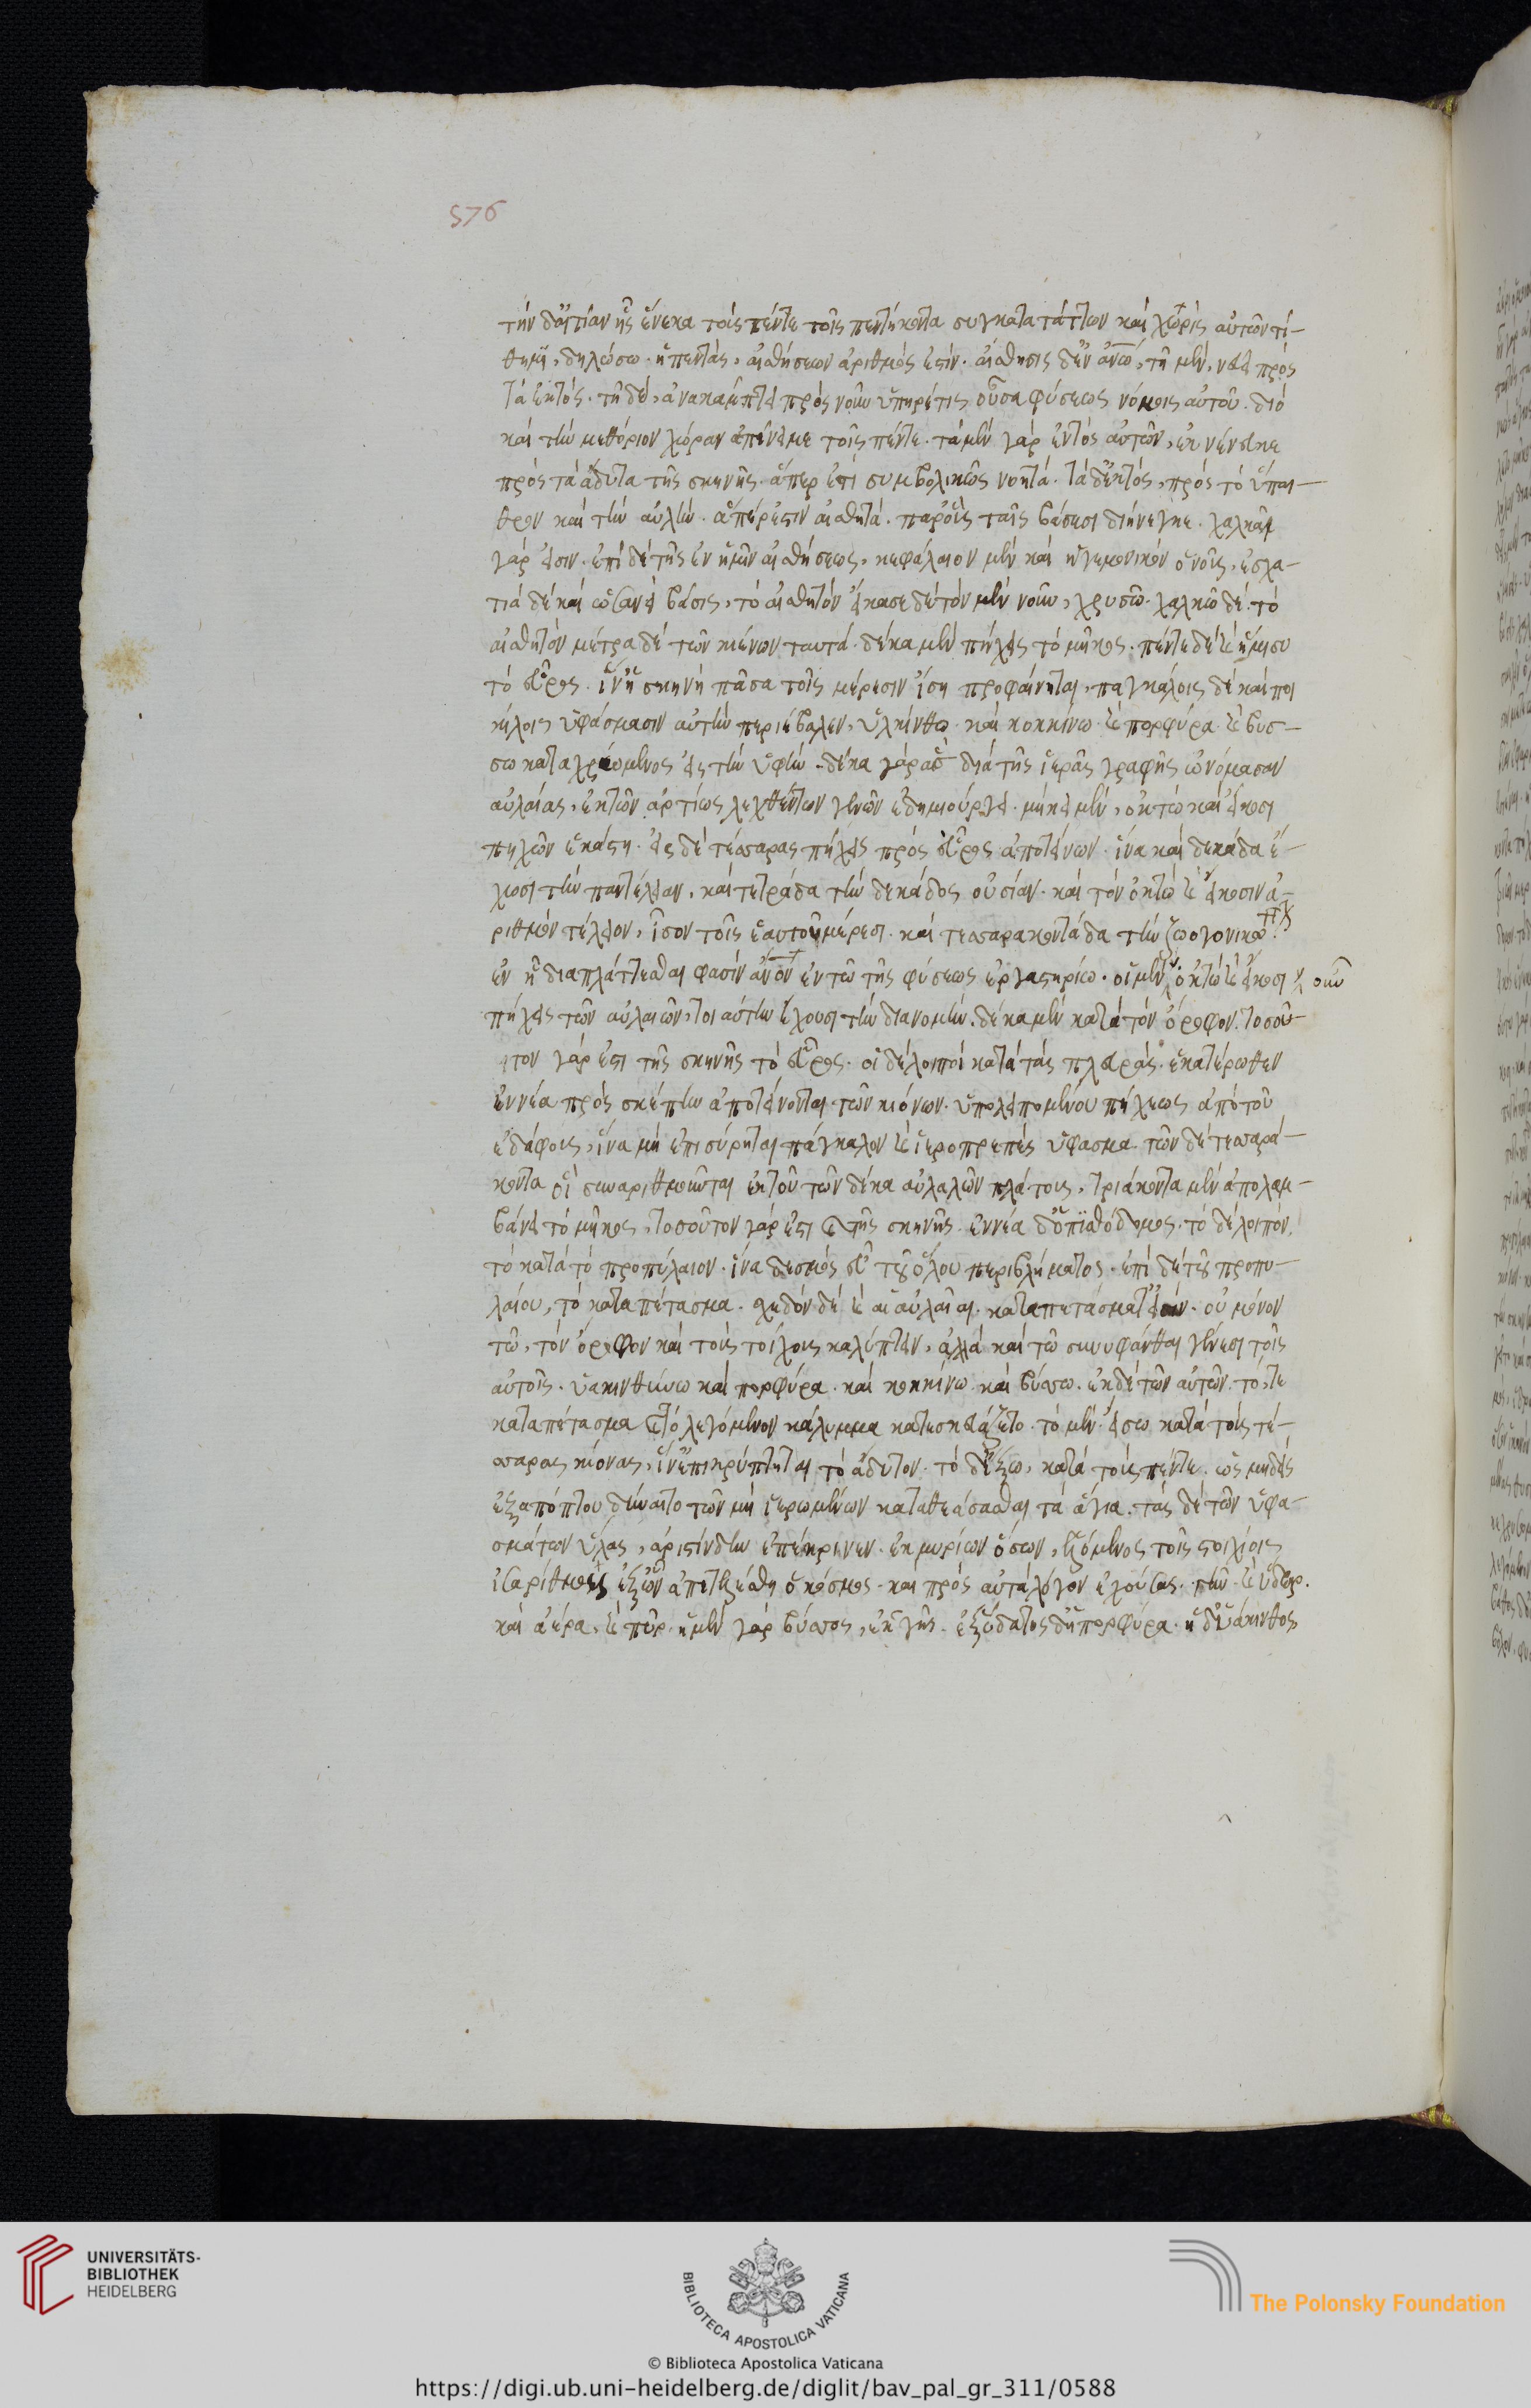 576
τὴν δ᾽ αἰτίαν ἧς ἕνεκα τοὺς πέντε τοῖς πεντήκοντα συγκατατάττων καὶ χωρὶς αὐτῶν τί-
θημι, δηλώσω. ἡ πεντὰς, αἰσθήσεων ἀριθμός ἐστίν. αἴσθησις δ᾽ ἐν ἀνω, τῆ μὲν, νεύει πρὸς
τὰ ἐκτός. τῆ δὲ, ἀνακάμπτει πρὸς νοῦν ὑπηρέτις οὖσα φύσεως νόμοις αὐτοῦ. διὸ
καὶ τὴν μεθόριον χώραν ἀπένειμε τοῖς πέντε. τὰ μὲν γὰρ ἐντὸς αὐτῶν, ἐκνένευκε
πρὸς τὰ ἄδυτα τῆς σκηνῆς. ἅπερ ἐστὶ συμβολικῶς νοητά. τὰ δ᾽ ἐκτὸς, πρὸς τὸ ὕπαι-
θρον καὶ τὴν αὐλήν. ἅπέρ ἐστιν αἰσθητά. παρὸ καὶ ταῖς βάσεσι διήνεγκε. χαλκαῖ
γάρ εἰσιν. ἐπὶ δὲ τῆς ἐν ἡμῖν αἰσθήσεως, κεφάλαιον μὲν καὶ ἡγεμονικὸν ὁ νοῦς, ἐσχα-
τιὰ δὲ καὶ ὡσανεὶ βάσις, τὸ αἰσθητὸν εἴκασε δὲ τὸν μὲν νοῦν, χρυσῶ. χαλκῶ δὲ. τὸ
αἰσθητὸν μέτρα δὲ τῶν κιόνων ταυτά. δέκα μὲν πήχεις τὸ μῆκος. πέντε δὲ καὶ ἥμισυ
τὸ εὖρος. ἵν᾽ ἡ σκηνὴ πᾶσα τοῖς μέρεσιν ἴση προφαίνηται, παγκάλοις δὲ καὶ ποι
κίλοις ὑφάσμασιν αὐτὴν περιέβαλεν, ὑακίνθω. καὶ κοκκίνω καὶ πορφύρα. καὶ βύσ-
σω καταχρώμενος εἰς τὴν ὑφήν. δέκα γὰρ ἃς διὰ τῆς ἱερᾶς γραφῆς ὠνόμασαν
αὐλαίας, ἐκ τῶν ἀρτίως λεχθέντων γενῶν ἐδημιούργει. μήκει μὲν, ὀκτὼ καὶ εἴκοσι
πηχῶν ἑκάστη. εἰς δὲ τέσσαρας πήχεις πρὸς εὖρος ἀποτείνων. ἵνα καὶ δεκάδα ἔ-
χωσι τὴν παντέλειαν, καὶ τετράδα τὴν δεκάδος οὐσίαν. καὶ τὸν ὀκτὼ καὶ εἴκοσιν ἀ-
ριθμὸν τέλειον, ἶσον τοῖς ἑαυτοῦ μέρεσι. καὶ τεσσαρακοντάδα τὴν ζωογονικω
ἐν ἧ διαπλάττεσθαι φασὶν ἀνον ἐν τῶ τῆς φύσεως ἐργαστηρίω. οἱ μὲν ὀκτὼ καὶ εἴκοσι οὖν
πήχεις τῶν αὐλαιῶν, τοι αύτην ἔχουσι τὴν διανομήν. δέκα μὲν κατὰ τὸν ὄροφον. τοσοῦ-
τον γάρ ἐστι τῆς σκηνῆς τὸ εὖρος. οἱ δὲ λοιποὶ κατὰ τὰς πλευράς. ἑκατέρωθεν
ἐννέα πρὸς σκέπην ἀποτείνονται τῶν κιόνων. ὑπολειπομένου πήχεως ἀπὸ τοῦ
ἐδάφους, ἵνα μὴ ἐπισύρηται πάγκαλον καὶ ἱεροπρεπὲς ὕφασμα τῶν δὲ τεσσαρά-
κοντα οἳ συναριθμοῦνται ἐκ τοῦ τῶν δέκα αὐλαιῶν πλάτους, τριάκοντα μὲν ἀπολαμ-
βάνει τὸ μῆκος, τοσοῦτον γάρ ἐστι τῆς σκηνῆς. ἐννέα δ᾽ ὁ ὀπϊσθόδομος. τὸ δὲ λοιπὸν,
τὸ κατὰ τὸ προπύλαιον. ἵνα δεσμὸς εἶ τοῦ ὅλου περιβλήματος. ἐπὶ δὲ τοῦ προπυ-
λαίου, τὸ καταπέτασμα. σχεδὸν δὲ καὶ αἱ αὐλαῖαι. καταπετάσματ᾽ εἰσιν. οὐ μόνον
τῶ, τὸν ὄροφον καὶ τοὺς τοίχους καλύπτειν, ἀλλὰ καὶ τῶ συνυφάνθαι γένεσι τοῖς
αὐτοῖς. ὑακινθίνω καὶ πορφύρα. καὶ κοκκίνω καὶ βύσσω. ἐκ δὲ τῶν αὐτῶν. τό,τε
καταπέτασμα καὶ τὸ λεγόμενον κάλυμμα κατεσκευάζετο. τὸ μὲν. εἴσω κατὰ τοὺς τέ-
σσαρας κίονας, ἵν᾽ ἐπικρύπτηται τὸ ἄδυτον. τὸ δ᾽ ἔξω, κατὰ τοὺς πέντε. ὡς μηδεὶς
ἐξαπόπτου δύναιτο τῶν μὴ ἱερωμένων καταθεάσασθαι τὰ ἅγια. τὰς δὲ τῶν ὑφα-
σμάτων ὕλας, ἀριστίνδην ἐπέκρινεν. ἐκ μυρίων ὅσων, ἑλόμενος τοῖς στοιχείοις
ἰσαρίθμους ἐξ ὧν ἀπετελέσθη ὁ κόσμος. καὶ πρὸς αὐτὰ λόγον ἐχούσας. γῆν. καὶ ὕδωρ.
καὶ ἀέρα. καὶ πῦρ. ἡ μὲν γὰρ βύσσος, ἐκ γῆς. ἐξ ὕδατος δ᾽ ἡ πορφύρα. ἡ δ᾽ ὑάκινθος
UNIVERSITÄTS-
BIBLIOTHEK
HEIDELBERG
BIBLIOTECA APOSTOLICA VATICANA
The Polonsky Foundation
© Biblioteca Apostolica Vaticana
https://digi.ub.uni-heidelberg.de/diglit/bav_pal_gr_311/0588